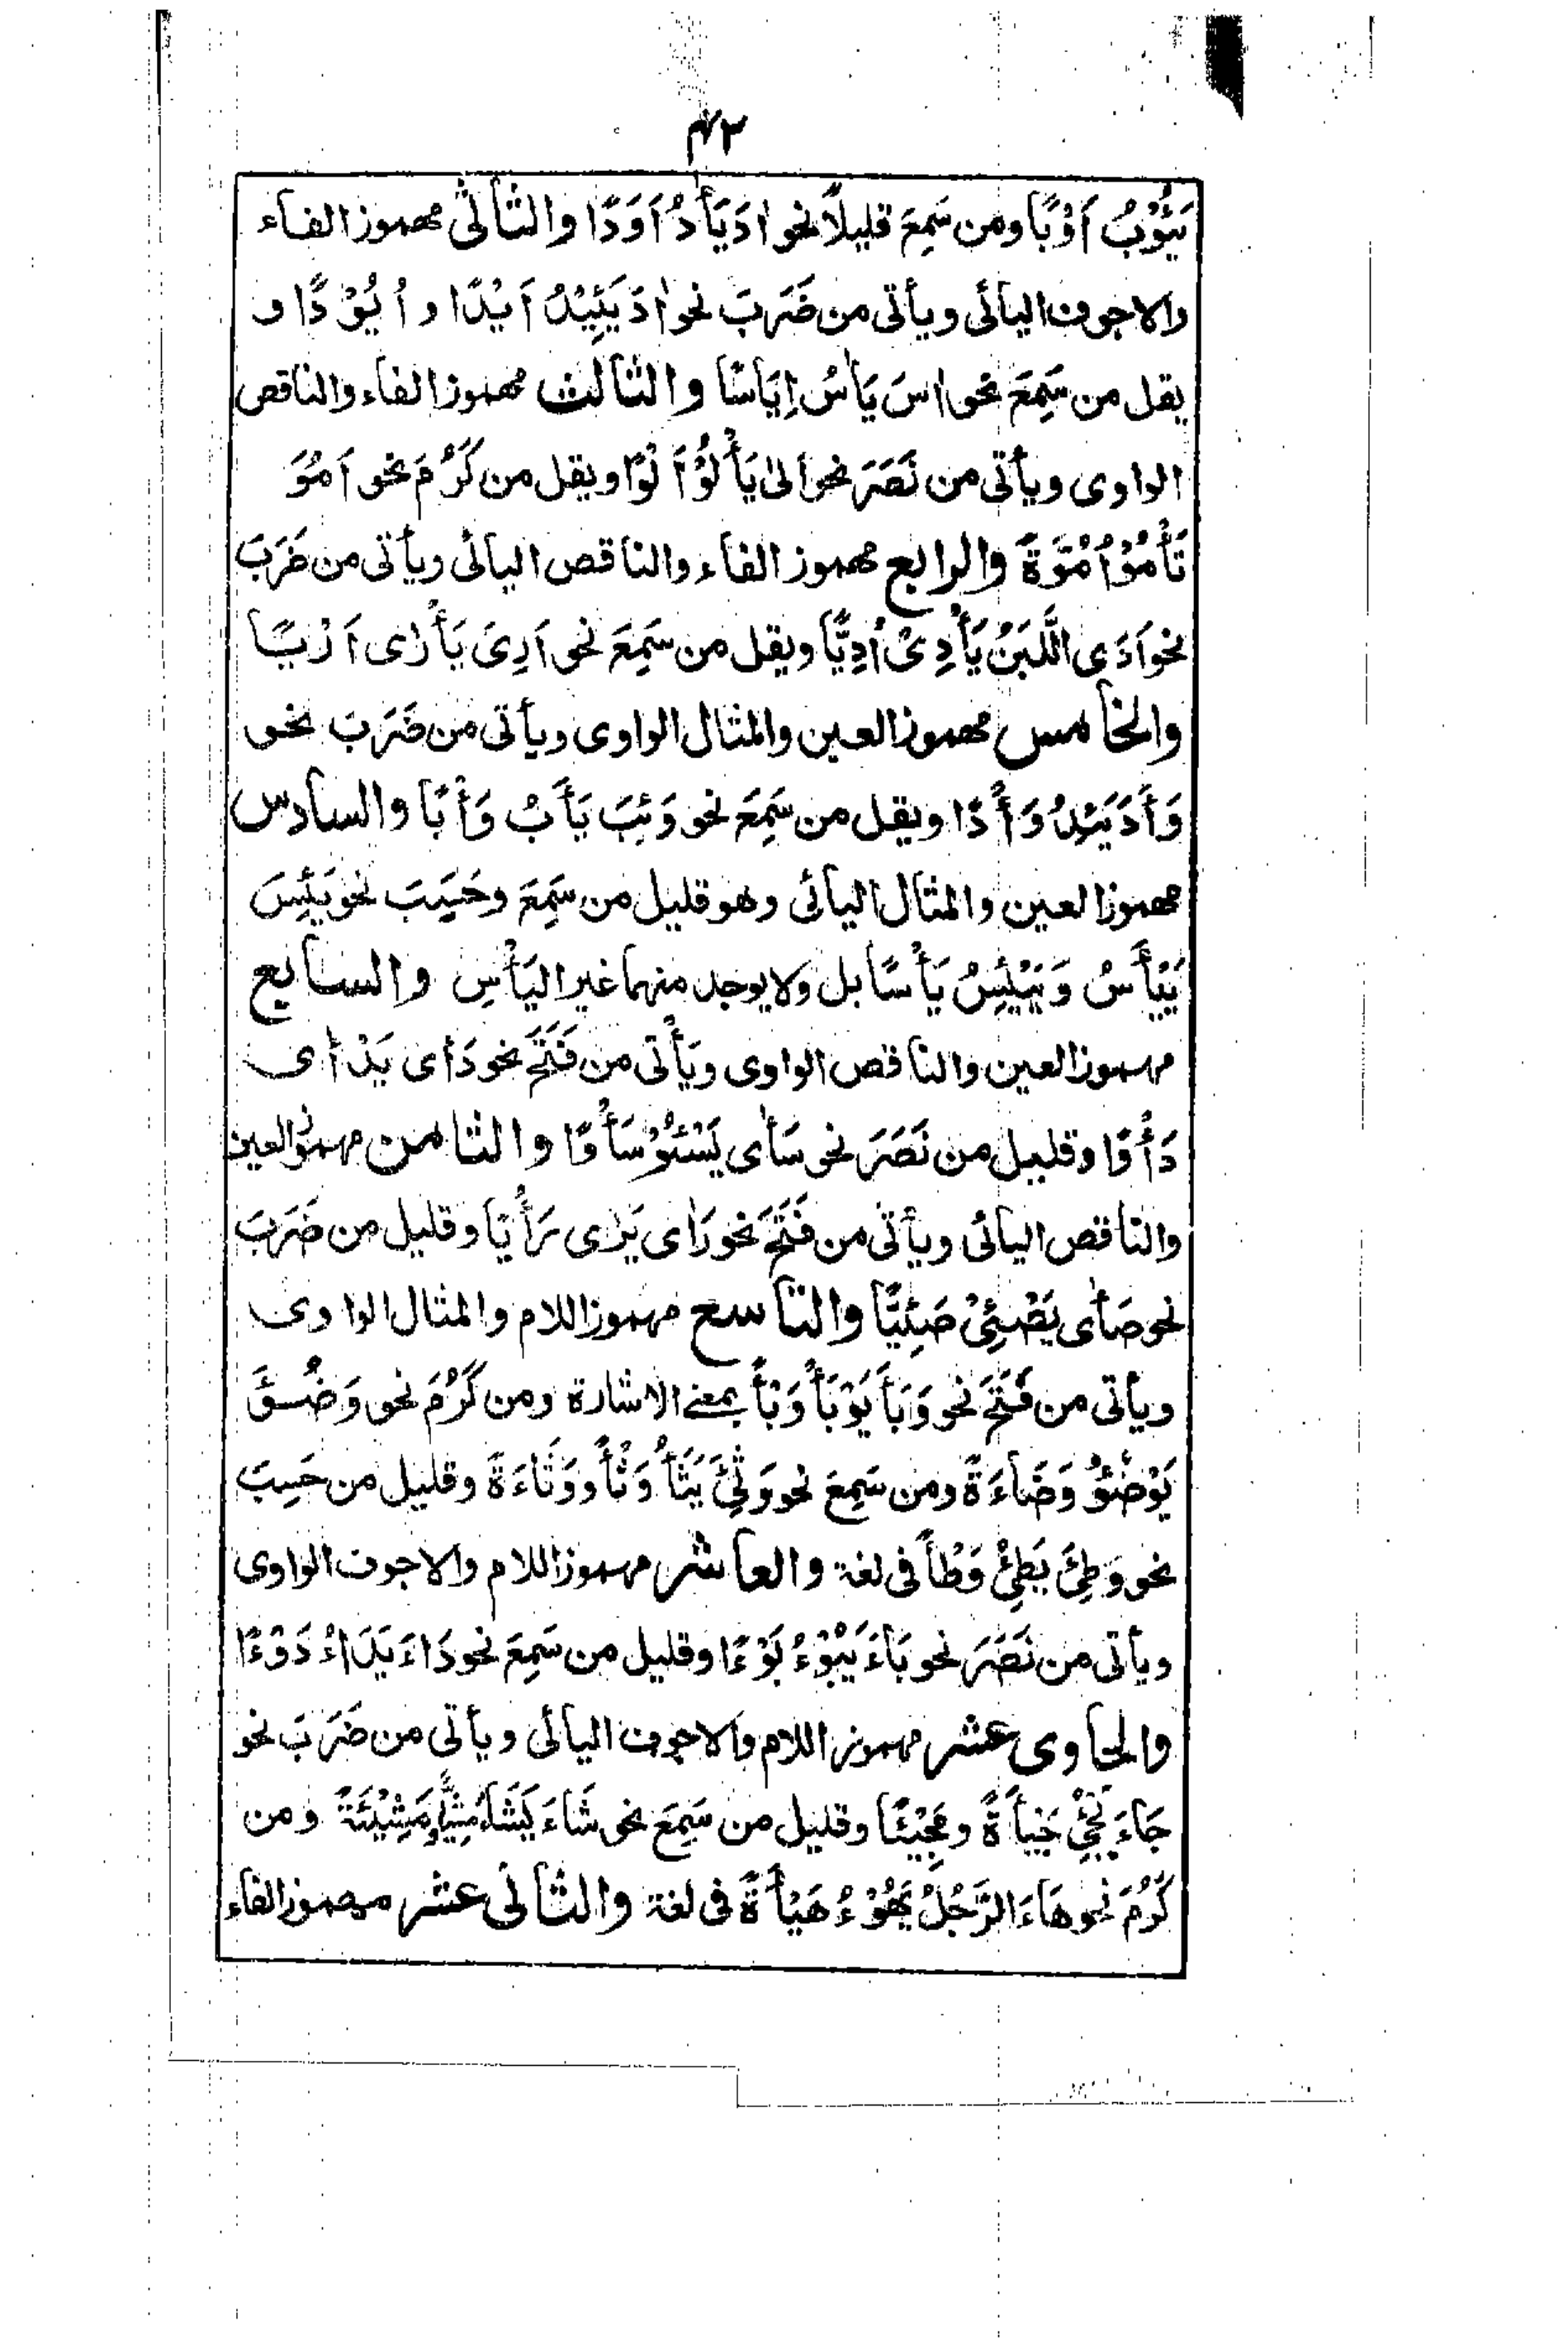 ۴۲
يَئُوْبُ اَوْبًا ومن سَمِعَ قليلًا نحو اٰدَ يَأَدُ اَوَدًا والثانى مهموز الفاء
والاجوف اليائى ويأتى من ضَرَبَ نحو اٰدَ يَئِيْدُ اَيْدًا و اُيُوْدًا و
يقل من سَمِعَ نحو اٰسَ يَاٰسُ اِيَاسًا والثالث مهموز الفاء والناقص
الواوى ويأتى من نَصَرَ نحو اَلىٰ يَأْلُوْ اَلْوًا ويقل من كَرُمَ نحو اَمُوَ
تَأْمُوْ اُمُوَّةً والرابع مهموز الفاء والناقص اليائى ويأتى من ضَرَبَ
نحو اَدَى اللَّبَنُ يَأْدِىْ اُدِيًّا ويقل من سَمِعَ نحو اَرِىَ يَأْرٰى اَرْيًا
والخامس مهموز العين والمثال الواوى ويأتى من ضَرَبَ نحو
وَأَدَ يَئِدُ وَأْدًا ويقل من سَمِعَ نحو وَئِبَ يَأَبُ وَأْبًا والسادس
مهموز العين والمثال اليائى وهو قليل من سَمِعَ وحَسِبَ نحو يَئِسَ
يَيْأَسُ وَيَيْئِسُ يَأْسًا بل ولا يوجد منهما غير اليَأْسِ والسابع
مهموز العين والناقص الواوى ويَأْتى من فَتَحَ نحو دَأى يَدْأى
دَأْوًا وقليل من نَصَرَ نحو سَأى يَسْئُوْ سَأْوًا والثامن مهموز العين
والناقص اليائى ويأتى من فَتَحَ نحو رَاٰى يَرٰى رَأْيًا وقليل من ضَرَبَ
نحو صَأٰى يَصْئِىْ صَئِيًّا والتاسع مهموز اللام والمثال الواوى
ويأتى من فَتَحَ نحو وَبَأَ يَوْبَأُ وَبْأً بمعنى الاشارة ومن كَرُمَ نحو وَضُؤَ
يَوْضُؤُ وَضَاءَةً ومن سَمِعَ نحو وَثِئَ يَثَأُ وَثْأً ووَثَاءَةً وقليل من حَسِبَ
نحو وَطِئَ يَطِئُ وَطْأً فى لغة والعاشر مهموز اللام والاجوف الواوى
ويأتى من نَصَرَ نحو بَاءَ يَبُوْءُ بَوْءًا وقليل من سَمِعَ نحو دَاءَ يَدَاءُ دَوْءًا
والحاوى عشر مهموز اللام والاجوف اليائى ويأتى من ضَرَبَ نحو
جَاءَ يَجِئُ جَيْأَةً ومَجِيْئًا وقليل من سَمِعَ نحو شَاءَ يَشَاءُ شَيْئًا ومَشِيْئَةً ومن
كَرُمَ نحو هَاءَ الرَّجُلُ يَهُوْءُ هَيْأَةً فى لغة والثانى عشر مهموز الفاء